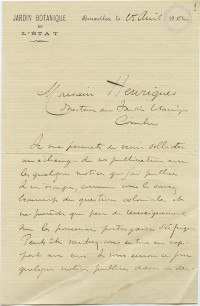 JARDIN BOTANIQUE
DE
L'ÉTAT
Bruxelles, le 15 Avril
Monsieur Henriques
Directeur du Jardin botanique
Coimbra
Je me permets de venir solliter
un échange de vos publications avec
les quelques notices que j'ai publiées
Je m'occupe, comme vous le savez,
beaucoup de question coloniale et
ne possède que peu de renseignements
sur les possessions portugaises d'Afrique.
Peut-être voudrez-vous entrer en rap-
port avec moi. Je vous envoie ce jour
quelques notices publiées dans ce